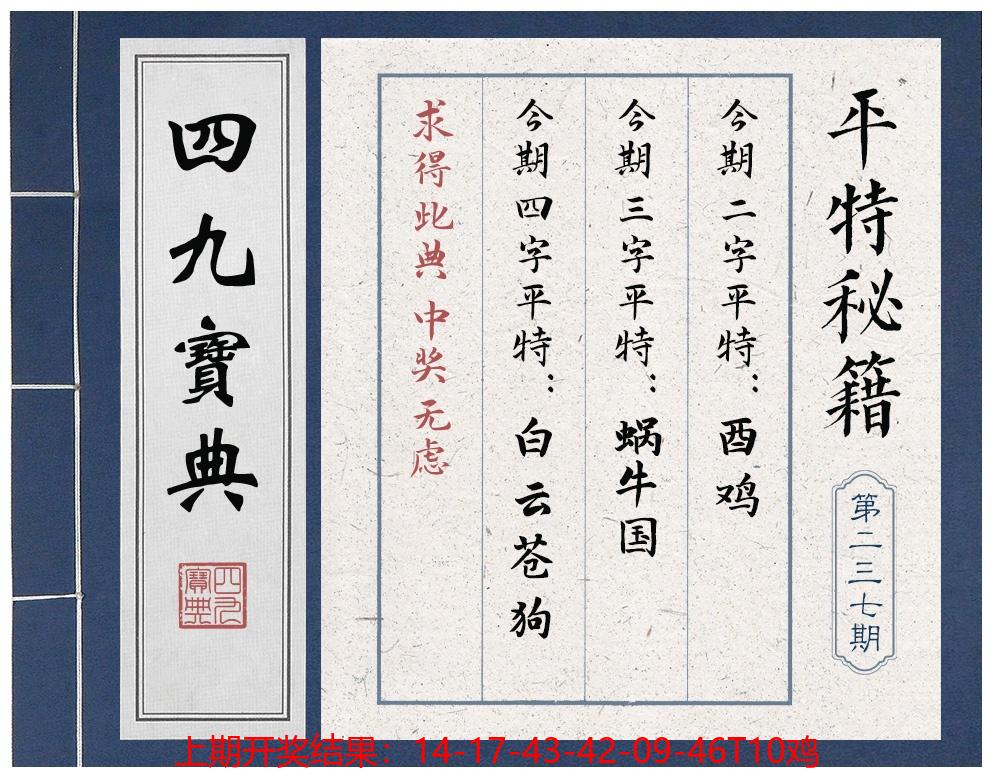 平特秘籍
第二三七期
今期二字平特：酉鸡
今期三字平特：蜗牛国
今期四字平特：白云苍狗
求得此典 中奖无虑
四九寶典
四九寶典
上期开奖结果：14-17-43-42-09-46T10鸡